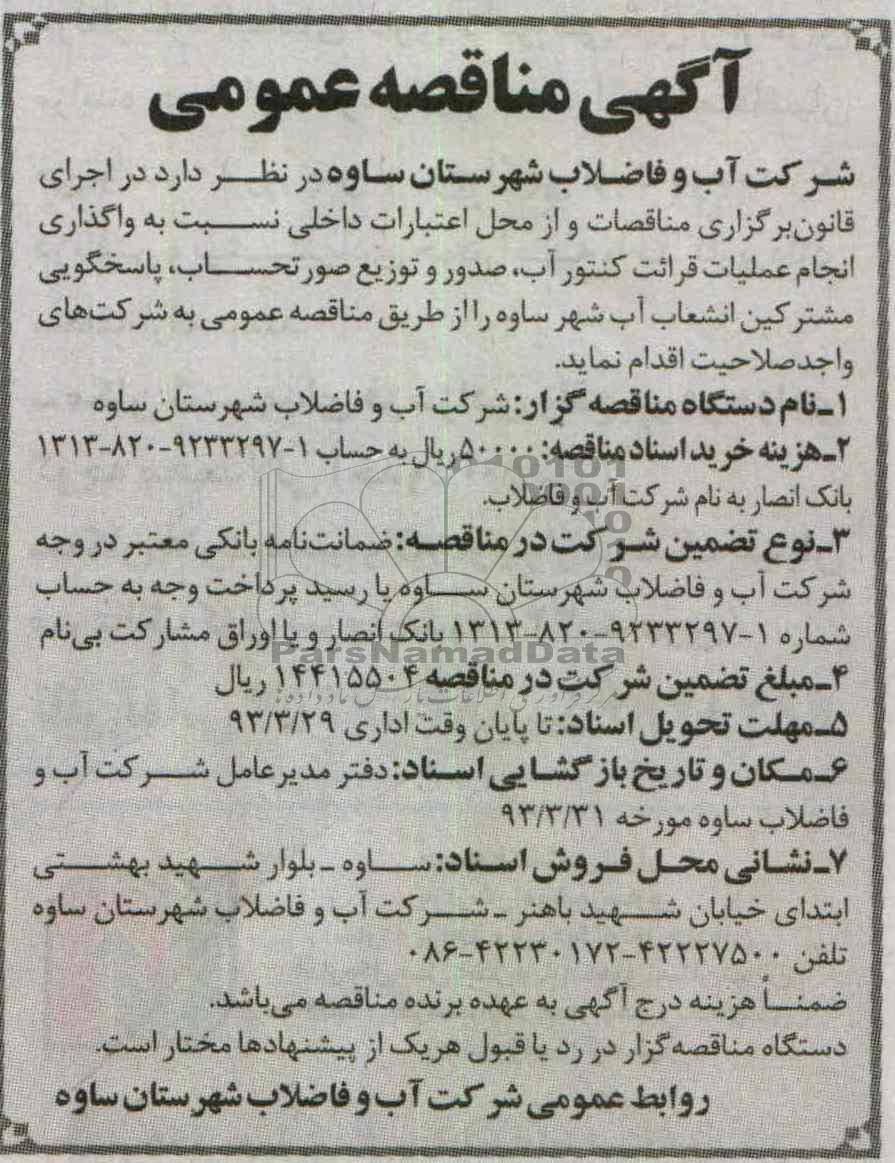 آگهی مناقصه عمومی
شرکت آب و فاضلاب شهرستان ساوه در نظر دارد در اجرای
قانون برگزاری مناقصات و از محل اعتبارات داخلی نسبت به واگذاری
انجام عملیات قرائت کنتور آب، صدور و توزیع صورتحساب، پاسخگویی
مشترکین انشعاب آب شهر ساوه را از طریق مناقصه عمومی به شرکت‌های
واجدصلاحیت اقدام نماید.
۱ـ نام دستگاه مناقصه گزار: شرکت آب و فاضلاب شهرستان ساوه
۲ـ هزینه خرید اسناد مناقصه: ۵۰۰۰۰۰ ریال به حساب ۱-۹۲۳۳۲۹۷-۸۲۰-۱۳۱۳
بانک انصار به نام شرکت آب و فاضلاب.
۳ـ نوع تضمین شرکت در مناقصه: ضمانت‌نامه بانکی معتبر در وجه
شرکت آب و فاضلاب شهرستان ساوه یا رسید پرداخت وجه به حساب
شماره ۱-۹۲۳۳۲۹۷-۸۲۰-۱۳۱۳ بانک انصار و یا اوراق مشارکت بی‌نام
۴ـ مبلغ تضمین شرکت در مناقصه ۱۴۴۱۵۵۰۴ ریال
۵ـ مهلت تحویل اسناد: تا پایان وقت اداری ۹۳/۳/۲۹
۶ـ مکان و تاریخ بازگشایی اسناد: دفتر مدیرعامل شرکت آب و
فاضلاب ساوه مورخه ۹۳/۳/۳۱
۷ـ نشانی محل فروش اسناد: ساوه ـ بلوار شهید بهشتی
ابتدای خیابان شهید باهنر ـ شرکت آب و فاضلاب شهرستان ساوه
تلفن ۴۲۲۲۷۵۰۰-۴۲۲۳۰۱۷۲-۰۸۶
ضمناً هزینه درج آگهی به عهده برنده مناقصه می‌باشد.
دستگاه مناقصه‌گزار در رد یا قبول هریک از پیشنهادها مختار است.
روابط عمومی شرکت آب و فاضلاب شهرستان ساوه
ParsNamadData